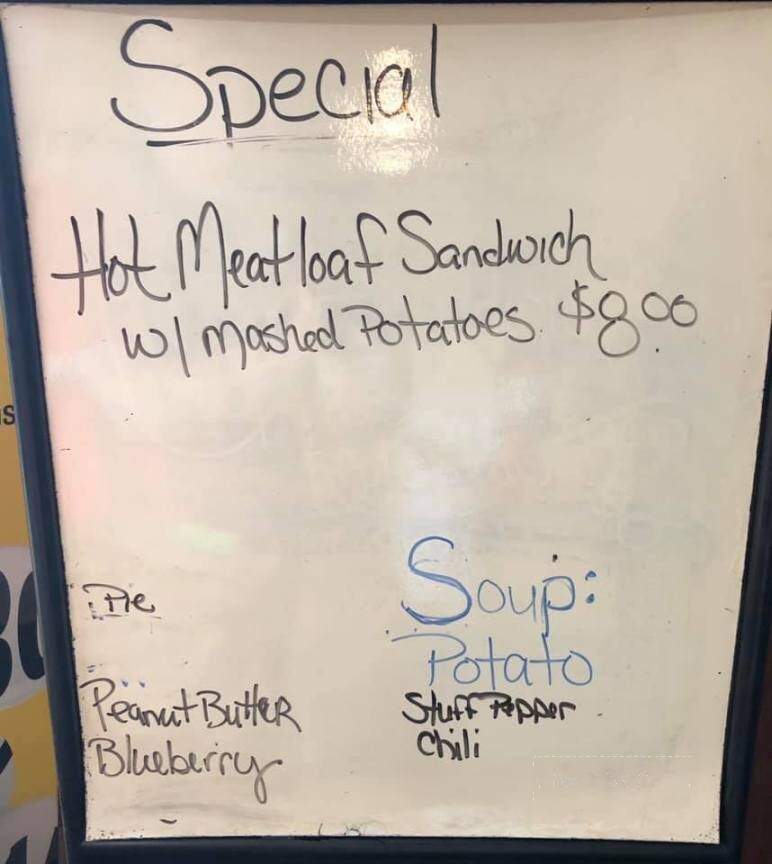 Special
Hot Meatloaf Sandwich
w/ Mashed Potatoes $8.00
Pie
Peanut Butter
Blueberry
Soup:
Potato
Stuff Pepper
Chili
s